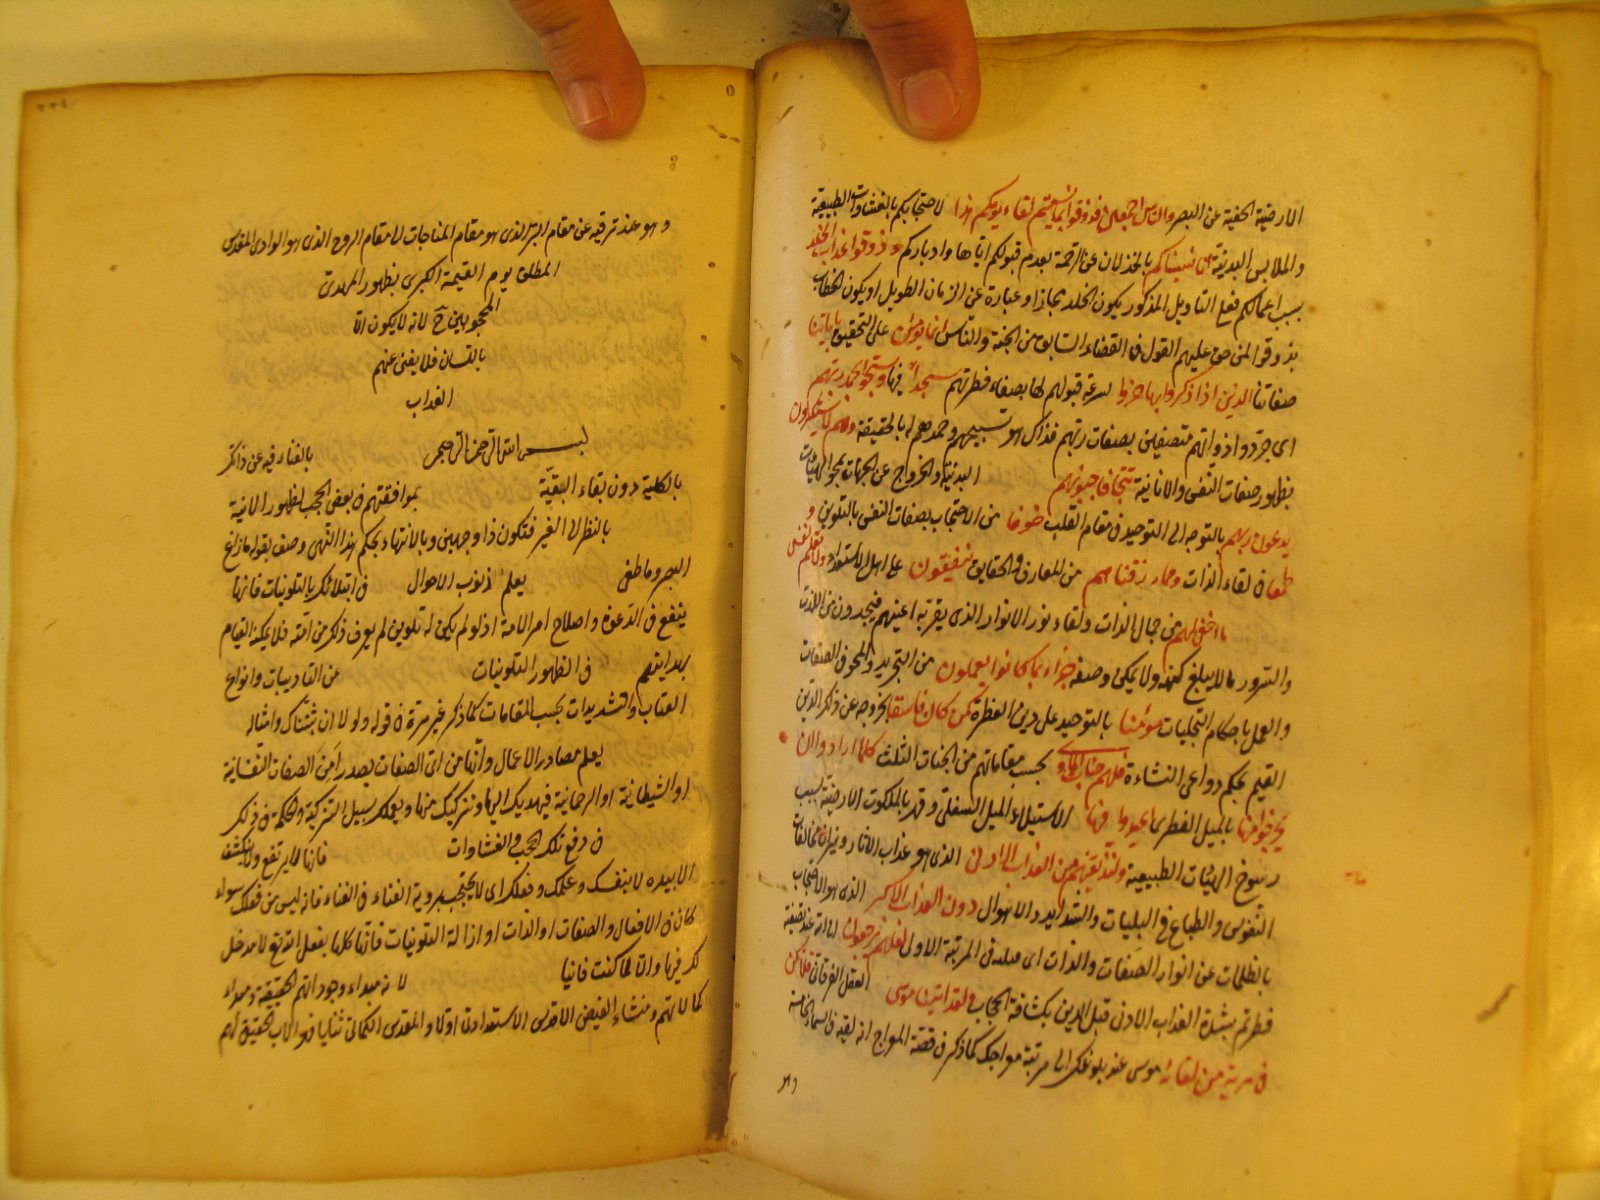 الارضية الخفية عن البصر والناس اجمعين فذوقوا بما نسيتم لقاء يومكم هذا لاحتجابكم بالغشاوات الطبيعية
والملابس البدنية انا نسيناكم بالخذلان عن الرحمة بعدم قبولكم اياها وادباركم وذوقوا عذاب الخلد
بسبب اعمالكم فعلى التاويل المذكور يكون الخلد مجازا وعبارة عن الزمان الطويل او يكون الخطاب
بذوقوا لمن حق عليهم القول فى القضاء السابق من الجنة والناس انما يؤمن على التحقيق باياتنا
صفاتنا الذين اذا ذكروا بها خروا لسرعة قبولهم لها بصفاء فطرتهم سجدا فيها وسبحوا بحمد ربهم
اى جردوا ذواتهم متصفين بصفات ربهم فذاك هو تسبيحهم وحمدهم له بالحقيقة وهم لا يستكبرون
بظهور صفات النفس والانانية تتجافى جنوبهم البدنية والخروج عن الجهات بمحو الهيئات
يدعون ربهم بالتوجه الى التوحيد فى مقام القلب خوفا من الاحتجاب بصفات النفس بالتلوين و
طمعا فى لقاء الذات ومما رزقناهم من المعارف والحقايق ينفقون على اهل الاستعداد فلا تعلم نفس
ما اخفى لهم من جمال الذات ولقاء نور الانوار الذى يقر به اعينهم فيجدون من اللذة
والسرور ما لا يبلغ كنهه ولا يمكن وصفه جزاء بما كانوا يعملون من التجريد والمحو فى الصفات
والعمل باحكام التجليات مؤمنا بالتوحيد على دين الفطرة كمن كان فاسقا بخروجه عن ذلك الدين
القيم بحكم دواعى النشاءة فلهم جنات الماوى بحسب مقاماتهم من الجنات الثلث كلما ارادوا ان
يخرجوا منها بالميل الفطرى اعيدوا فيها لاستيلاء الميل السفلى وقهر الملكوت الارضية بسبب
رسوخ الهيئات الطبيعية ولنذيقنهم من العذاب الادنى الذى هو عذاب الاثار ونيران مخالفات
النفوس والطباع فى البليات والشدايد والاهوال دون العذاب الاكبر الذى هو الاحتجاب
بالظلمات عن انوار الصفات والذات لعلهم يرجعون
فطرتهم بشدة العذاب الادنى قبل الدين بكثافة الحجاب ولقد اتينا موسى العقل الفرقانى فلا تكن
فى مرية من لقائه موسى عند بلوغك الى مرتبة معراجك كما ذكر فى قصة المعراج انه لقيه فى السماء الخامسة
وهو
وهو عند ترقيه عن مقام السر الذى هو مقام المناجات الى مقام الروح الذى هو الوادى المقدس
المطلق يوم القيمة الكبرى بظهور المهدى
المحجوبين ح لانه لا يكون الا
باللسان فلا يغنى عنهم
العذاب
بسم الله الرحمن الرحيم بالفناء فيه عن ذاتك
بالكلية دون بقاء البقية بموافقتهم فى بعض الحجب لظهور الانية
بالنظر الى الغير فتكون ذا وجهين وبالانتهاء بحكم هذا النهى وصف بقوله ما زاغ
البصر وما طغى يعلم ذنوب الاحوال فى ابتلائك بالتلوينات فانها
ينفع فى الدعوة واصلاح امر الامة اذ لو لم يكن له تلوين لم يعرف ذلك من امته فلا يمكنه القيام
بهدايتهم فى الظهور التلوينات من التاديبات وانواع
العتاب والتشديدات بحسب المقامات كما ذكر غير مرة فى قوله ولولا ان ثبتناك وامثاله
يعلم مصادر الاعمال وانها من اى الصفات يصدر امن الصفات النفسانية
او الشيطانية او الرحمانية فيهديك اليها ويزكيك منها ويعلمك سبيل التزكية والحكمة فى ذلك
فى رفع تلك الحجب والغشاوات فانها لا يرتفع ولا ينكشف
الا بيده لا بنفسك وعلمك وفعلك اى لا تحتجب برؤية الفناء فى الفناء فانه ليس من فعلك سواء
كان فى الافعال والصفات او الذات او ازالة التلوينات فانها كلها بفعل الله تع لا مدخل
لك فيها والا لما كنت فانيا لانه مبداء وجوداتهم الحقيقية ومبداء
كمالاتهم ومنشاء الفيض الاقدس الاستعدادى اولا والمقدس الكمالى ثانيا فهو الاب الحقيقى لهم